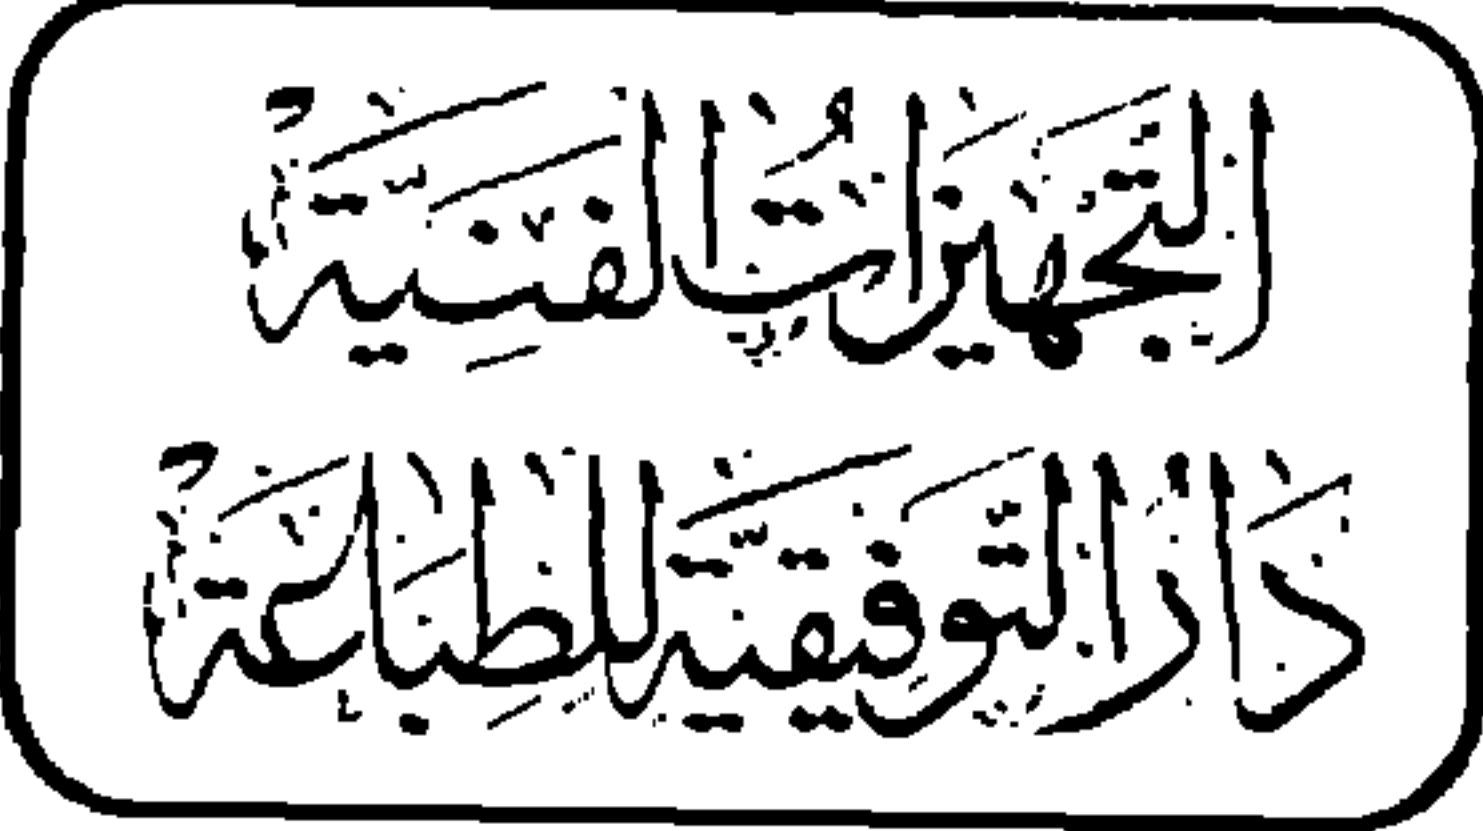 التَّجْهِيزَاتُ الفَنِّيَّةُ
دَارُ التَّوْفِيقِيَّةِ لِلطِّبَاعَةِ